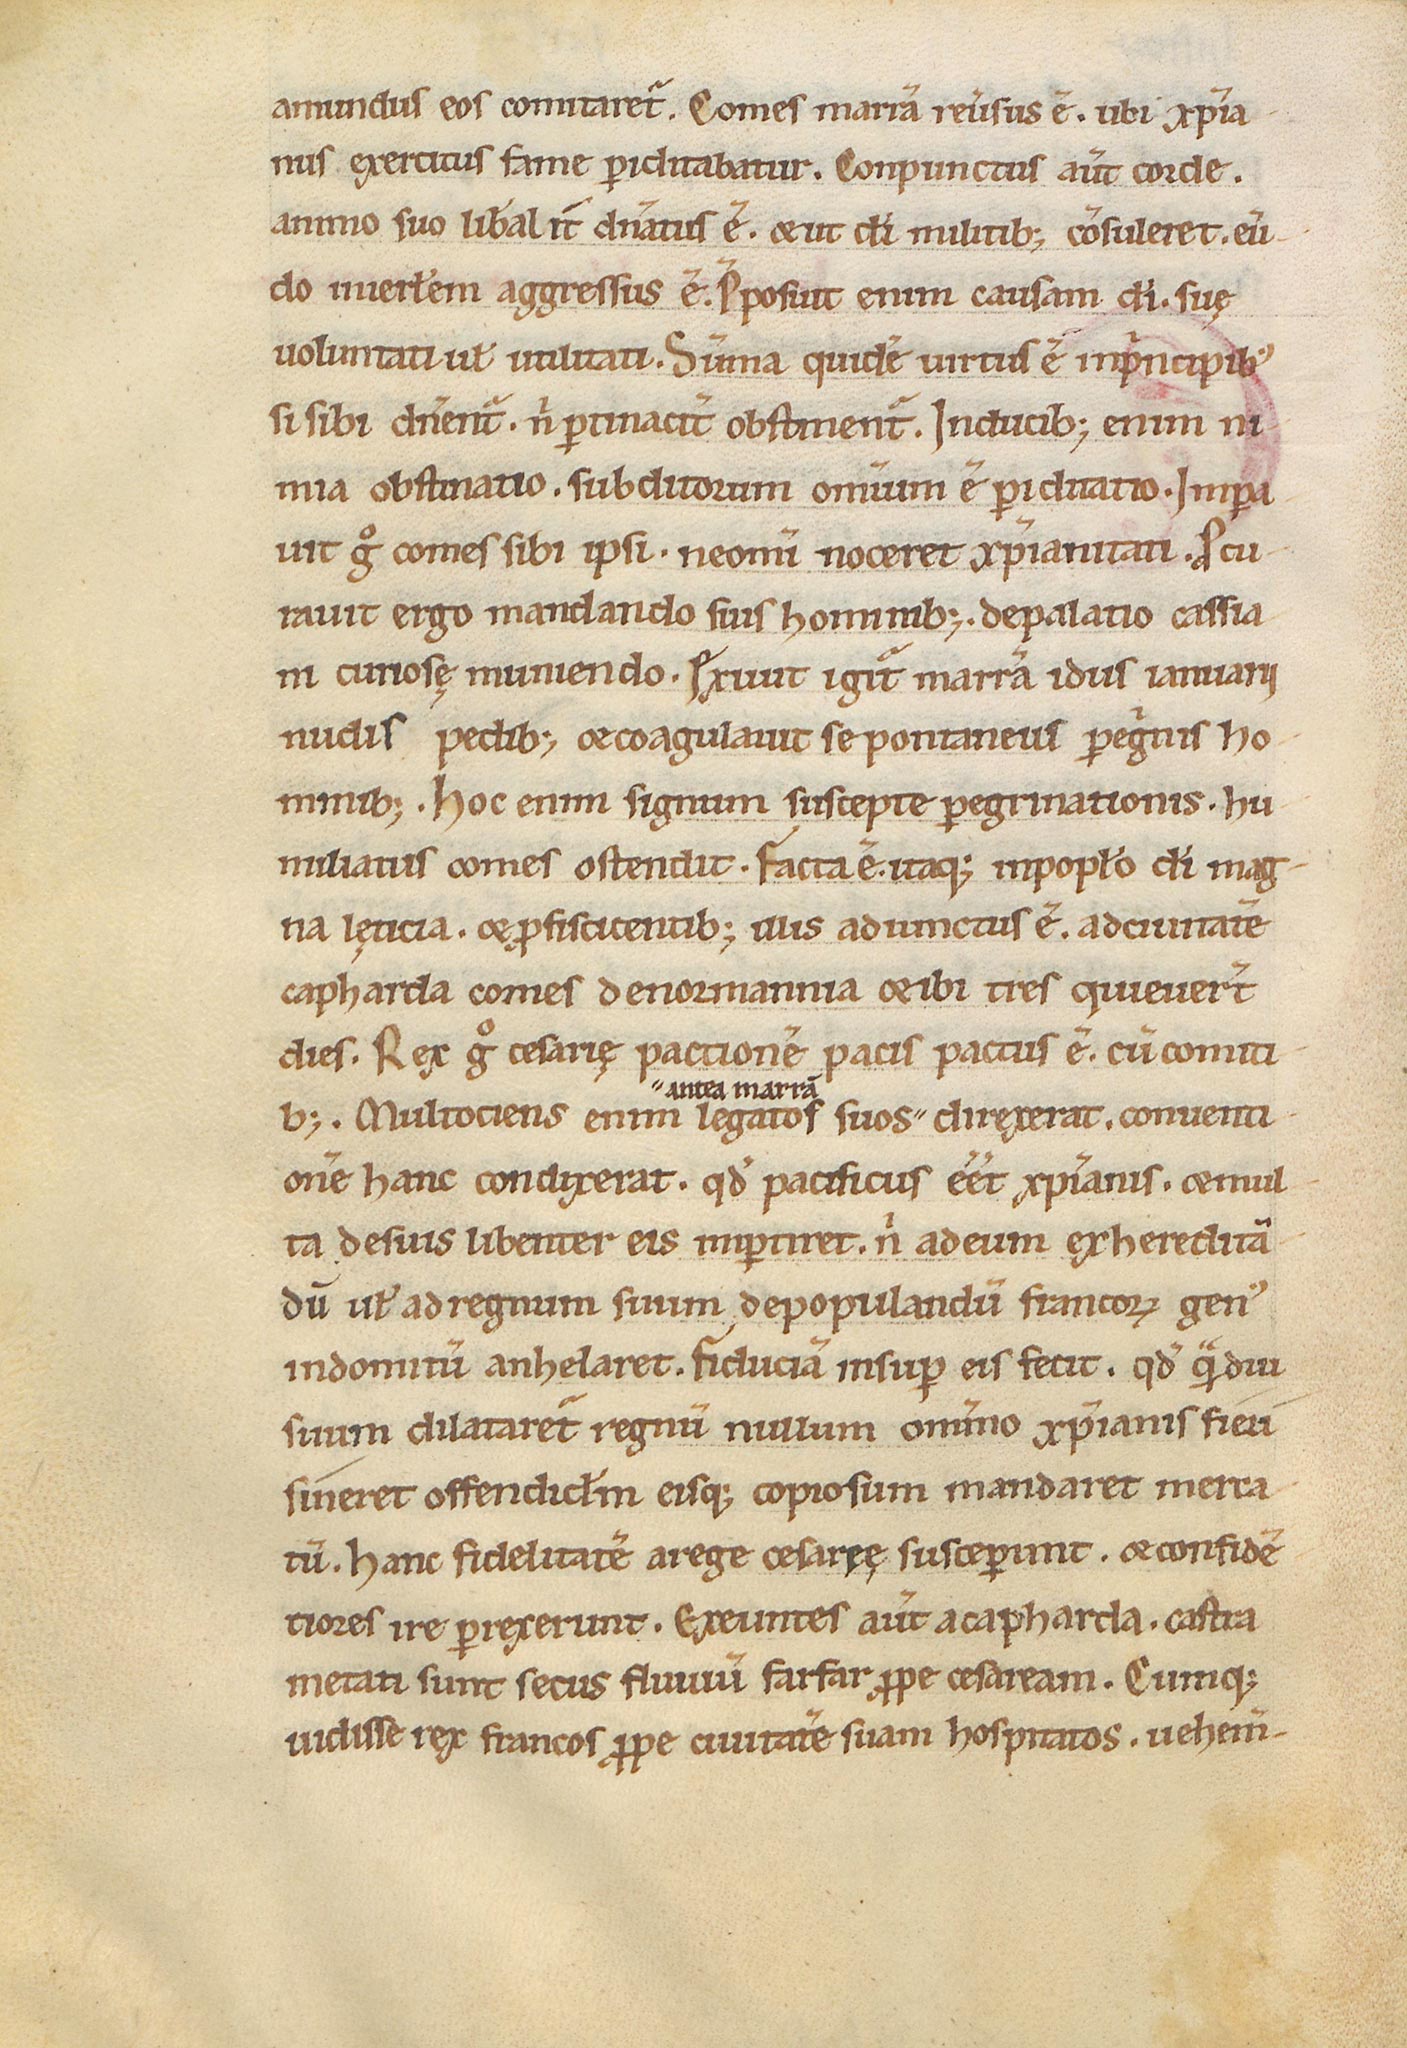 amundus eos comitaret᷒. Comes marrā reūsus ē. ubi xp̄ia
nus exercitus fame ꝑiclitabatur. Conpunctus aūt corde.
animo suo lib̄alit̄ dn̄atus ē. & ut dī militib; cōsuleret. eūn
do iniert̄em aggressus ē. P̄posuit enim causam dī. suę
uoluntati ul̄ utilitati. Sūma quidē uirtus ē inp̄ncipib᷒
si sibi dn̄ent᷒. n̄ ꝑtinacit̄ obstinent᷒. Inducib; enim ni
mia obstinatio. subditorum omīum ē ꝑiclitatio. Imꝑa
uit gͦ comes sibi ipsi. neomī noceret xp̄ianitati. Ꝓcu
rauit ergo mandando suis hominib;. depalatio cassia
ni curiosę muniendo. Exiuit igit᷒ marrā idus ianuarij
nudis pedib; & coagulauit se pontaneus ꝑegⁱnis ho
minib;. Hoc enim signum suscepte ꝑegrinationis. hu
miliatus comes ostendit. Facta ē. itaq; inpopl̄o dī mag
na lęticia. & ꝓfiscicentib; illis adiunctus ē. adciuitatē
capharda comes denormannia & ibi tres quieuer̄t
dies. Rex gͦ cesarię pactionē pacis pactus ē. cū comiti
b;. Multociens enim legatos suos " direxerat. conuenti
" antea marrā
onē hanc condixerat. qd̄ pacificus eēt xp̄ianis. & mul
ta desuis libenter eis imꝑtiret. n̄ adeum exhereditā
dū ul̄ adregnum suum depopulandū francoꝝ gen᷒
indomitū anhelaret. Fiduciā insuꝑ eis fecit. qd̄ qͣdiu
suum dilataret᷒ regnū nullum omīno xp̄ianis fieri
sineret offendicl̄m eisq; copiosum mandaret merca
tū. Hanc fidelitatē arege cesaręę susceꝑunt. & confidē
tiores ire ꝑrexerunt. Exeuntes aūt acapharda. castra
metati sunt secus fluuiū farfar ꝓpe cesaream. Cumq;
uidisse rex francos ꝓpe ciuitatē suam hospitatos. uehem̄